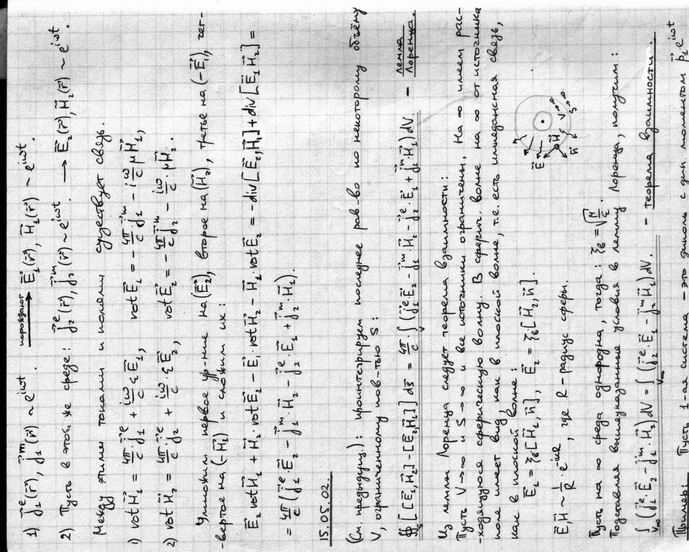 1) j₁ᵉ(r⃗), j₁ᵐ(r⃗) ~ e^{iωt}. порождают → E⃗₁(r⃗), H⃗₁(r⃗) ~ e^{iωt}.
2) Пусть в этой же среде: j₂ᵉ(r⃗), j₂ᵐ(r⃗) ~ e^{iωt}. → E⃗₂(r⃗), H⃗₂(r⃗) ~ e^{iωt}
Между этими токами и полями существует связь.
1) rot H⃗₁ = 4π/c j⃗₁ᵉ + iω/c ε E⃗₁, rot E⃗₁ = -4π/c j⃗₁ᵐ - iω/c μ H⃗₁,
2) rot H⃗₂ = 4π/c j⃗₂ᵉ + iω/c ε E⃗₂, rot E⃗₂ = -4π/c j⃗₂ᵐ - iω/c μ H⃗₂.
Умножим первое ур-ние на (E⃗₂), второе на (H⃗₂), третье на (-E⃗₁), чет-
-вертое на (-H⃗₁) и сложим их:
E⃗₂ rot H⃗₁ + H⃗₂ rot E⃗₁ - E⃗₁ rot H⃗₂ - H⃗₁ rot E⃗₂ = -div[E⃗₂,H⃗₁] + div[E⃗₁H⃗₂] =
= 4π/c (j⃗₁ᵉ E⃗₂ - j⃗₁ᵐ H⃗₂ - j⃗₂ᵉ E⃗₁ + j⃗₂ᵐ H⃗₁).
15.05.02.
(см. предыдущ.): проинтегрируем последнее рав-во по некоторому объёму
V, ограниченному пов-тью S:
∮_S [[E⃗₁,H⃗₂] - [E⃗₂H⃗₁]] ds⃗ = 4π/c ∫_V (j⃗₁ᵉ E⃗₂ - j⃗₁ᵐ H⃗₂ - j⃗₂ᵉ E⃗₁ + j⃗₂ᵐ H⃗₁) dV. - лемма Лоренца.
Из леммы Лоренца следует теорема взаимности:
Пусть V→∞ и S→∞ и все источники ограничены. На ∞ имеем рас-
-ходящуюся сферическую волну. В сферич. волне на ∞ от источника
поле имеет вид, как в плоской волне, т.е. есть импедансная связь,
как в плоской волне:
E⃗₁ = ξ_в [H⃗₁, n⃗], E⃗₂ = ξ_в [H⃗₂, n⃗].
E⃗, H⃗ ~ 1/R e^{-ikR}, где R - радиус сферы.
E⃗ H⃗ n⃗ V→∞ S→∞
Пусть на ∞ среда однородна, тогда: ξ_в = √(μ/ε)
Подставляя вышеуказанные условия в лемму Лоренца, получим:
∫_{V∞} (j⃗₁ᵉ E⃗₂ - j⃗₁ᵐ H⃗₂) dV = ∫_{V∞} (j⃗₂ᵉ E⃗₁ - j⃗₂ᵐ H⃗₁) dV. - теорема взаимности.
Пример: Пусть 1-ая система - это диполь с дип. моментом p⃗₁ e^{iωt}